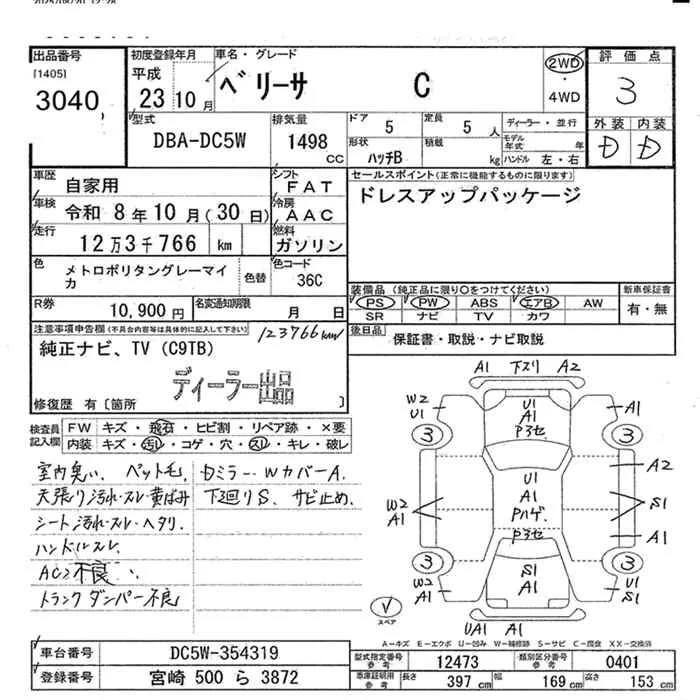 出品番号 初度登録年月 車名・グレード 評価点
[1405] 平成 ベリーサ C 2WD
3040 23 10月 ・4WD 3
型式 排気量 ドア 定員 ディーラー・並行 外装 内装
DBA-DC5W 1498 CC 5 5 人 モデル年式 年 D D
形状 積載
ハッチB kg ハンドル 左・右
車歴 自家用 シフト FAT セールスポイント(正常に機能するものに限ります)
車検 令和 8年 10月(30日) 冷房 AAC ドレスアップパッケージ
走行 12万3千766 km 燃料 ガソリン
色 メトロポリタングレーマイカ 色替 色コード 36C
装備品 (純正品に限り○をつけてください) 新車保証書
PS PW ABS エアB AW 有・無
SR ナビ TV カワ
R券 10,900円 名変通知期限 月 日
後日品 保証書・取説・ナビ取説
注意事項申告欄(不具合内容等は具体的に記入して下さい) 123766km
純正ナビ、TV (C9TB)
ディーラー出品
修復歴 有〔箇所 〕
検査員記入欄 FW キズ・飛石・ヒビ割・リペア跡・×要
内装 キズ・汚レ・コゲ・穴・スレ・キレ・破レ
室内臭い、ペット毛、Dミラー Wカバー A.
天張り汚れ・スレ・黄ばみ 下回りS、サビ止め.
シート汚れ・スレ・ヘタリ.
ハンドルスレ.
AC 不良
トランクダンパー不良
A1 下スリ A2
W2 U1 A1
U1 A1
P3セ
3 3
A2
U1
A1
Pハゲ.
W2 A1 S1
P3セ A1
3 3
W2 A1 S1 A1 U1 S1
スペア
UA1 A1
A-キズ E-エクボ U-凹み W-補修跡 S-サビ C-腐食 XX-交換済
車台番号 DC5W-354319 型式指定番号 参考 12473 類別区分番号 参考 0401
登録番号 宮崎 500 ら 3872 車庫証明用 参考 長さ 397 cm 幅 169 cm 高さ 153 cm